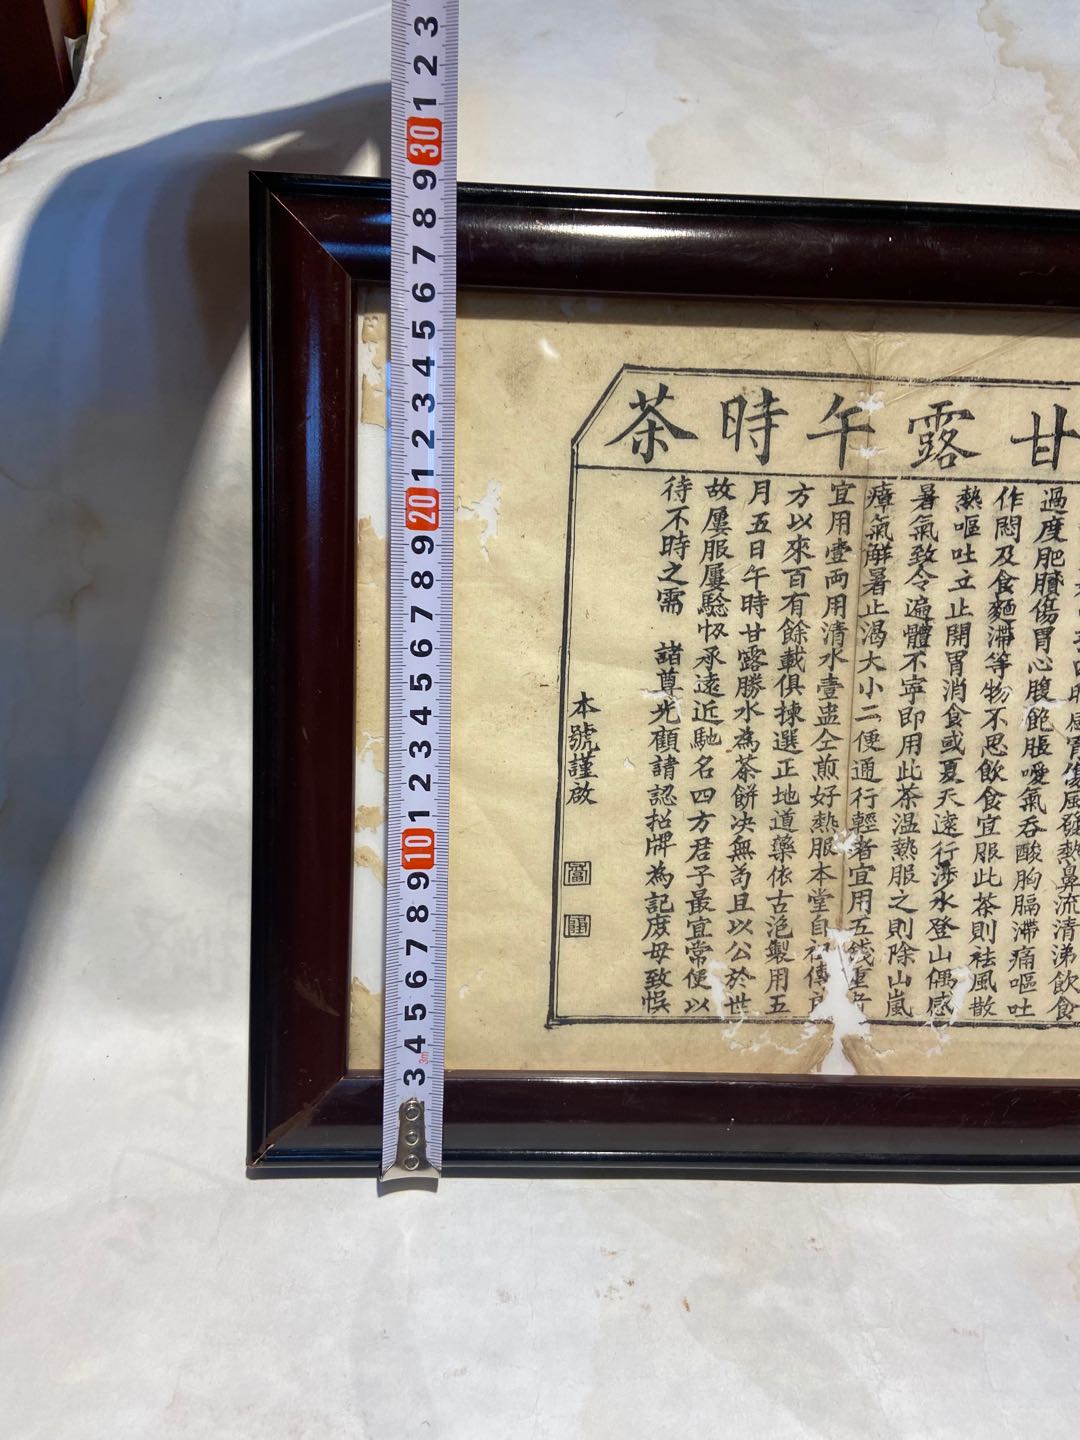 甘露午時茶
過度肥膿傷胃心腹飽脹噯氣吞酸胸膈滯痛嘔吐
作悶及食麵滯等物不思飲食宜服此茶則祛風散
熱嘔吐立止開胃消食或夏天遠行涉水登山偶感
暑氣致令遍體不寧即用此茶温熱服之則除山嵐
瘴氣解暑止渴大小二便通行輕者宜用五錢重者
宜用壹両用清水壹盅仝煎好熱服本堂自祖傳良
方以來百有餘載俱揀選正地道藥依古泡製用五
月五日午時甘露勝水為茶餅决無苟且以公於世
故屢服屢驗叔承遠近馳名四方君子最宜常便以
待不時之需 諸尊光顧請認招牌為記度毋致悞
本號謹啟
3 4 5 6 7 8 9 10 1 2 3 4 5 6 7 8 9 20 1 2 3 4 5 6 7 8 9 30 1 2 3
3m